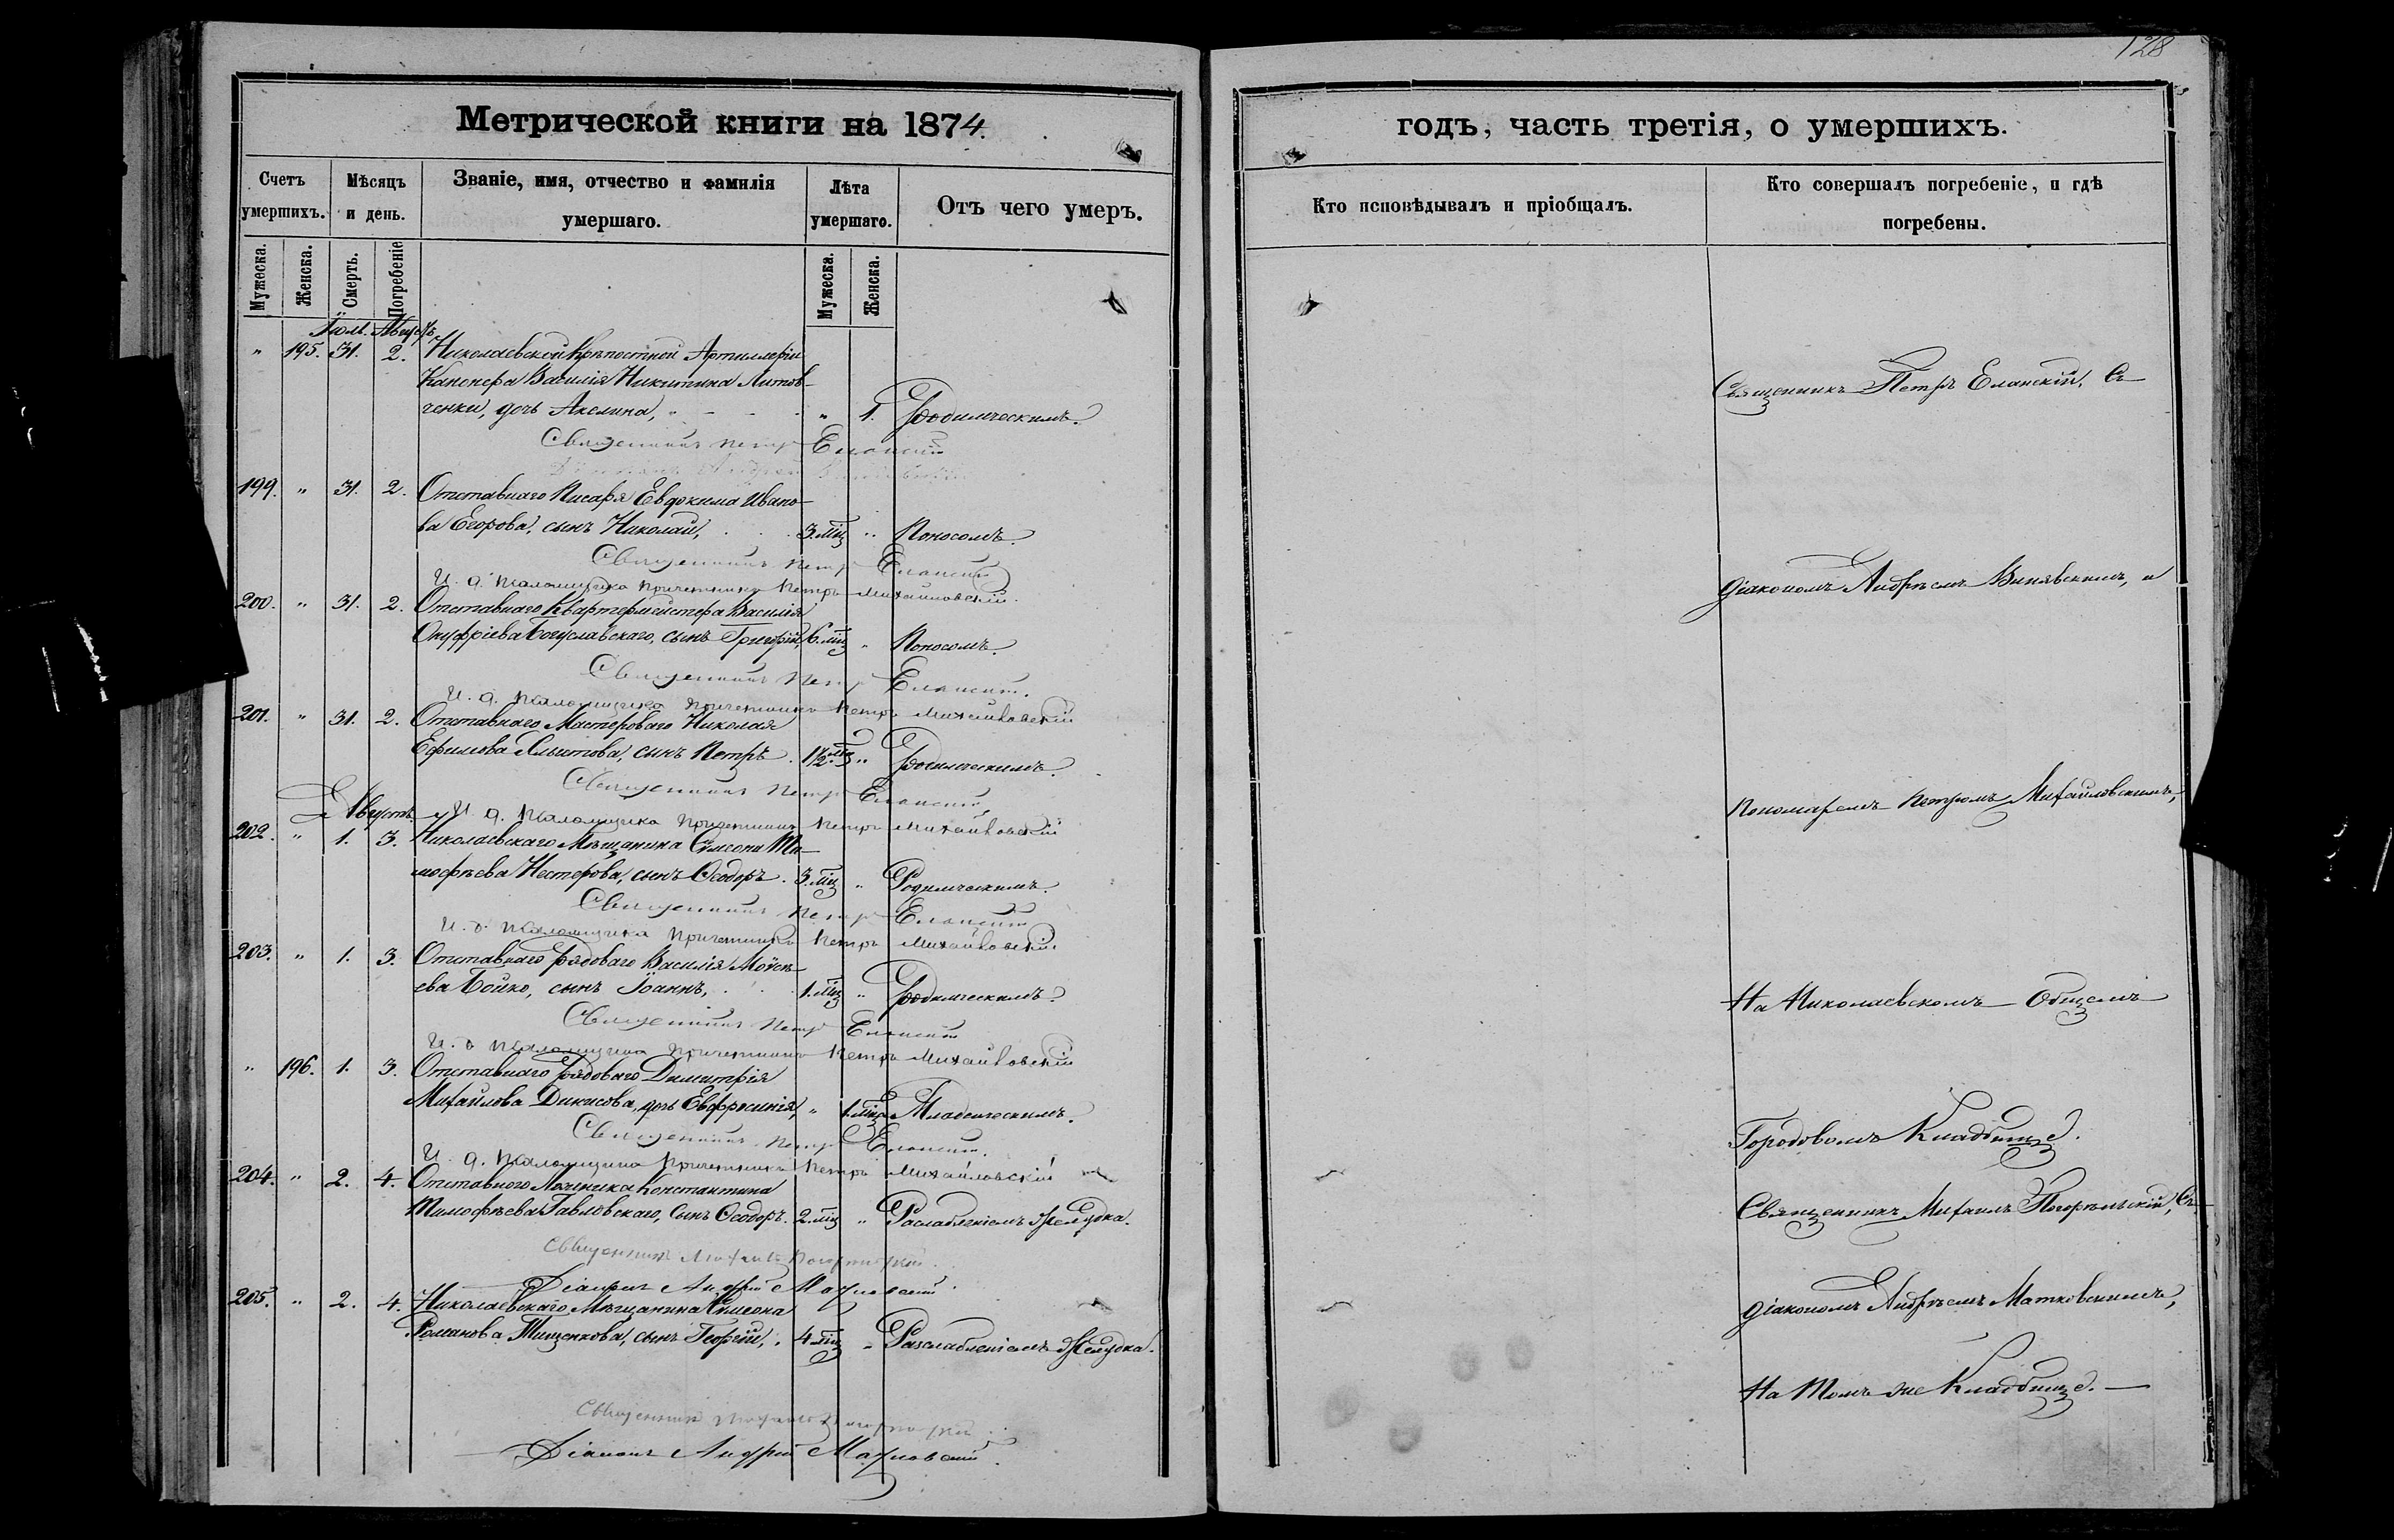 128
Метрической книги на 1874.
годъ, часть третія, о умершихъ.
Счетъ умершихъ.
Мѣсяцъ и день.
Званіе, имя, отчество и фамилія умершаго.
Лѣта умершаго.
Отъ чего умеръ.
Кто исповѣдывалъ и пріобщалъ.
Кто совершалъ погребеніе, и гдѣ погребены.
Мужеска.
Женска.
Смерть.
Погребеніе
Мужеска.
Женска.
Іюль. Августъ
" 195. 31. 2. Николаевской Крѣпостной Артиллеріи
Канонера Василія Никитина Литов-
ченки, дочь Акелина, " 1. Родимческимъ.
Священникъ Петръ Еланскій
199. " 31. 2. Отставнаго Писаря Евдокима Ивано-
ва Егорова, сынъ Николай, 3. мц " Поносомъ.
Священникъ Петръ Еланскій
И. д. псаломщика причетникъ Петръ Михайловскій.
200. " 31. 2. Отставнаго Квартермейстера Василія
Онуфріева Богуславскаго, сынъ Григорій, 6. мц " Поносомъ.
Священникъ Петръ Еланскій.
И. д. псаломщика причетникъ Петръ Михайловскій
201. " 31. 2. Отставнаго Мастероваго Николая
Ефимова сынъ Петръ. 1½ " Родимческимъ.
Священникъ Петръ Еланскій,
Августъ И. д. псаломщика причетникъ Петръ Михайловскій
202. " 1. 3. Николаевскаго Мѣщанина Симеона Ти-
мофѣева Нестерова, сынъ Ѳеодоръ. 3. мц " Родимческимъ.
Священникъ Петръ Еланскій
И. д. псаломщика причетникъ Петръ Михайловскій.
203. " 1. 3. Отставнаго рядоваго Василія Моѵсѣ-
ева Бойко, сынъ Іоаннъ, 1. мц " Родимческимъ.
Священникъ Петръ Еланскій
И. д. псаломщика причетникъ Петръ Михайловскій
" 196. 1. 3. Отставнаго рядоваго Димитрія
Михайлова Дикисова, дочь Евфросинія, " 1. мц Младенческимъ.
Священникъ Петръ Еланскій.
И. д. псаломщика причетникъ Петръ Михайловскій
204. " 2. 4. Отставного Константина
Тимофѣева Павловскаго, Сынъ Ѳеодоръ. 2. мц " Раслабленіемъ Желудка.
Священникъ Михаилъ Погорѣльскій.
Діаконъ Андрей Матковскій.
205. " 2. 4. Николаевскаго Мѣщанина Симеона
Романова Тищенкова, сынъ Георгій, 4. мц " Разслабленіемъ Желудка.
Священникъ Михаилъ Погорѣльскій.
Діаконъ Андрей Матковскій.
Священникъ Петръ Еланскій, Съ
діакономъ Андреемъ Винявскимъ, и
Пономаремъ Петромъ Михайловскимъ,
На Николаевскомъ Общемъ
Городовомъ Кладбищѣ.
Священникъ Михаилъ Погорѣльскій, Съ
діакономъ Андреемъ Матковскимъ,
На томъ же Кладбищѣ.